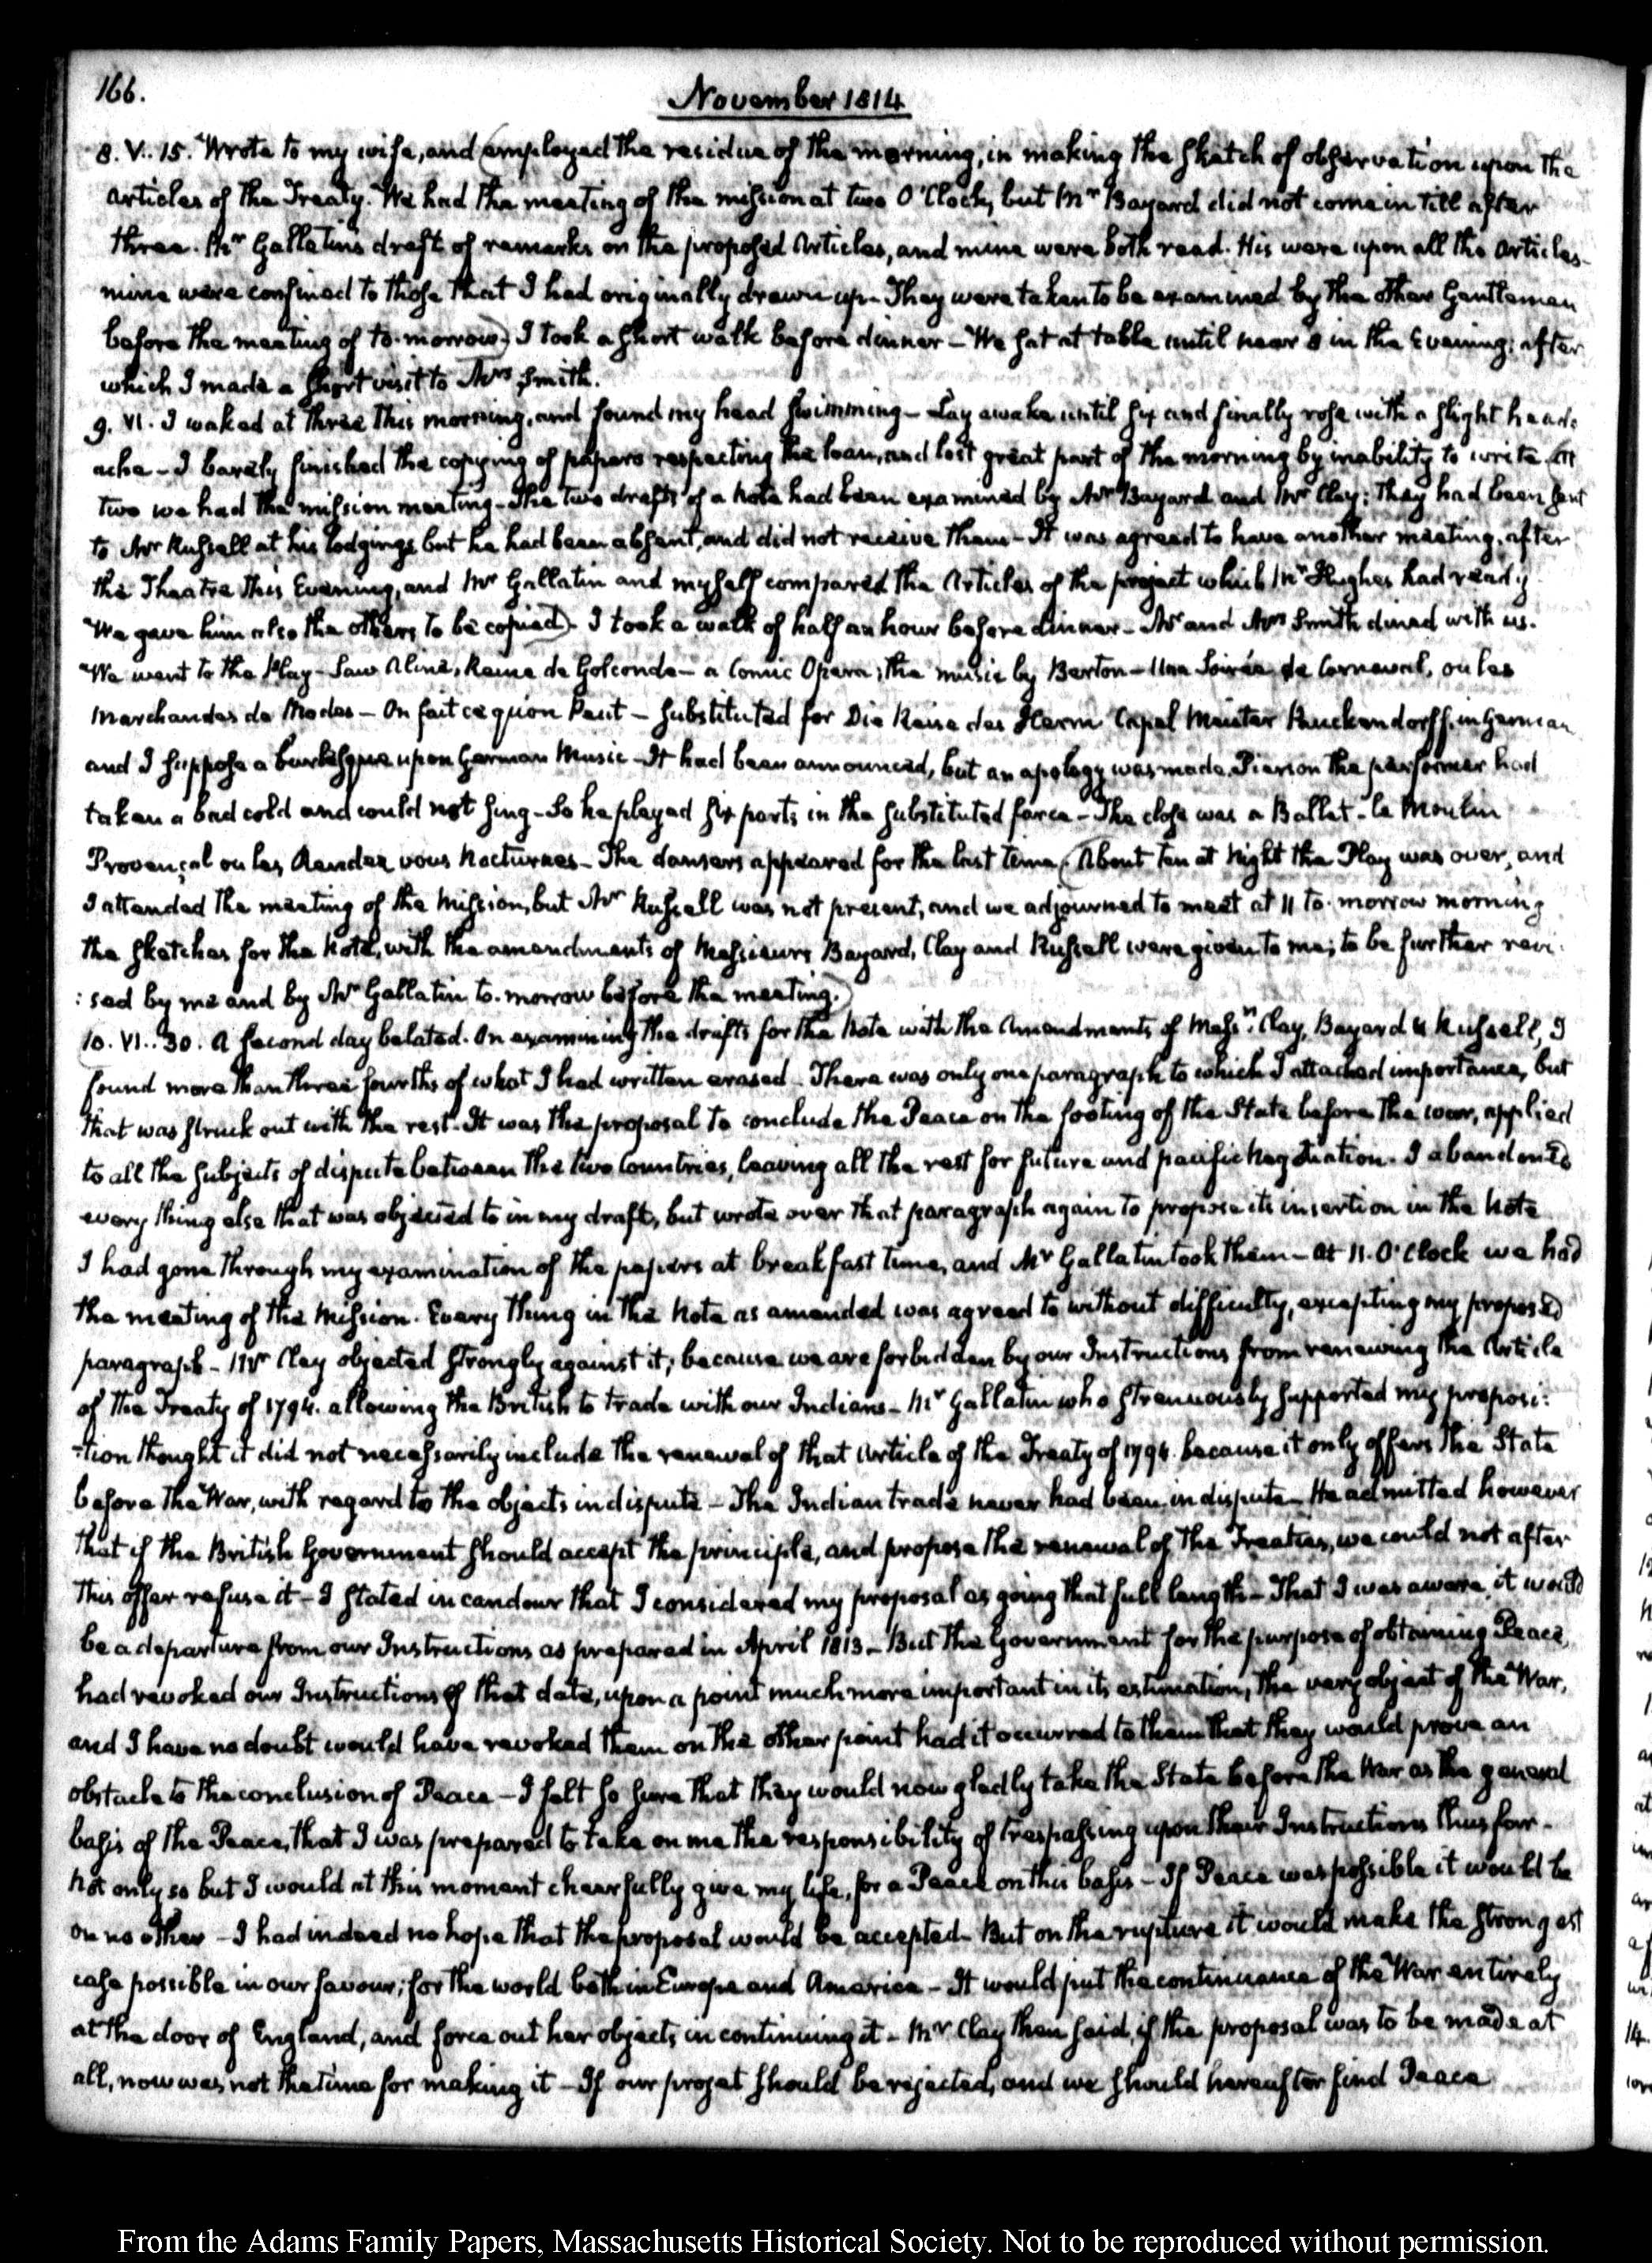 166.
November 1814
8. V.. 15. Wrote to my wife, and (employed the residue of the morning, in making the sketch of observation upon the
articles of the Treaty. We had the meeting of the mission at two O'Clock, but Mr Bayard did not come in till after
three. Mr Gallatin's draft of remarks on the proposed Articles, and mine were both read. His were upon all the Articles—
mine were confined to those that I had originally drawn up. They were taken to be examined by the other Gentlemen
before the meeting of to-morrow) I took a short walk before dinner — We sat at table until near 8 in the Evening: after
which I made a short visit to Mrs Smith.
9. VI. I waked at three this morning, and found my head swimming — Lay awake until six and finally rose with a slight head-
ache — I barely finished the copying of papers respecting the loan, and lost great part of the morning by inability to write (At
two we had the mission meeting — The two drafts of a Note had been examined by Mr Bayard and Mr Clay: They had been sent
to Mr Russell at his lodgings but he had been absent, and did not receive them — It was agreed to have another meeting, after
the Theatre this Evening, and Mr Gallatin and myself compared the Articles of the project which Mr Hughes had ready
We gave him also the others to be copied) — I took a walk of half an hour before dinner — Mr and Mrs Smith dined with us.
We went to the Play — Saw Aline, Reine de Golconde — a Comic Opera; the music by Berton — Une Soirée de Carnaval, ou les
Marchandes de Modes — On fait ce qu'on Peut — substituted for Die Reise des Herrn Capel Meister Puckendorff, in German
and I suppose a burlesque upon German Music — It had been announced, but an apology was made. Pierson the performer had
taken a bad cold and could not sing — So he played six parts in the substituted farce — The close was a Ballet — le Moulin
Provençal ou les Rendez vous Nocturnes — The dansers appeared for the last time. (About ten at Night the Play was over, and
I attended the meeting of the Mission, but Mr Russell was not present, and we adjourned to meet at 11 to-morrow morning
the sketches for the Note, with the amendments of Messieurs Bayard, Clay and Russell were given to me; to be further revi:
:sed by me and by Mr Gallatin to-morrow before the meeting.)
(10. VI.. 30. A second day belated. On examining the drafts for the Note with the Amendments of Messrs Clay, Bayard & Russell, I
found more than three fourths of what I had written erased — There was only one paragraph to which I attached importance, but
that was struck out with the rest — It was the proposal to conclude the Peace on the footing of the State before the war, applied
to all the subjects of dispute between the two Countries, leaving all the rest for future and pacific Negotiation. I abandoned
every thing else that was objected to in my draft, but wrote over that paragraph again to propose its insertion in the Note
I had gone through my examination of the papers at breakfast time, and Mr Gallatin took them — At 11. O'Clock we had
the meeting of the Mission. Every thing in the Note as amended was agreed to without difficulty, excepting my proposed
paragraph — Mr Clay objected strongly against it, because we are forbidden by our Instructions from renewing the Article
of the Treaty of 1794. allowing the British to trade with our Indians — Mr Gallatin who strenuously supported my proposi:
-tion thought it did not necessarily include the renewal of that Article of the Treaty of 1794. because it only offers the State
before the War, with regard to the objects in dispute — The Indian trade never had been in dispute — He admitted however
that if the British Government should accept the principle, and propose the renewal of the Treaties, we could not after
this offer refuse it — I stated in candour that I considered my proposal as going that full length — That I was aware it would
be a departure from our Instructions as prepared in April 1813 — But the Government for the purpose of obtaining Peace
had revoked our Instructions of that date, upon a point much more important in its estimation, the very object of the War,
and I have no doubt would have revoked them on the other point had it occurred to them that they would prove an
obstacle to the conclusion of Peace — I felt so sure that they would now gladly take the State before the War as the general
basis of the Peace, that I was prepared to take on me the responsibility of trespassing upon their Instructions thus far.
Not only so but I would at this moment cheerfully give my life, for a Peace on this basis — If Peace was possible it would be
on no other — I had indeed no hope that the proposal would be accepted — But on the rupture it would make the strongest
case possible in our favour; for the world both in Europe and America — It would put the continuance of the War entirely
at the door of England, and force out her objects in continuing it — Mr Clay then said, if the proposal was to be made at
all, now was not the time for making it — If our projet should be rejected, and we should hereafter find Peace
From the Adams Family Papers, Massachusetts Historical Society. Not to be reproduced without permission.